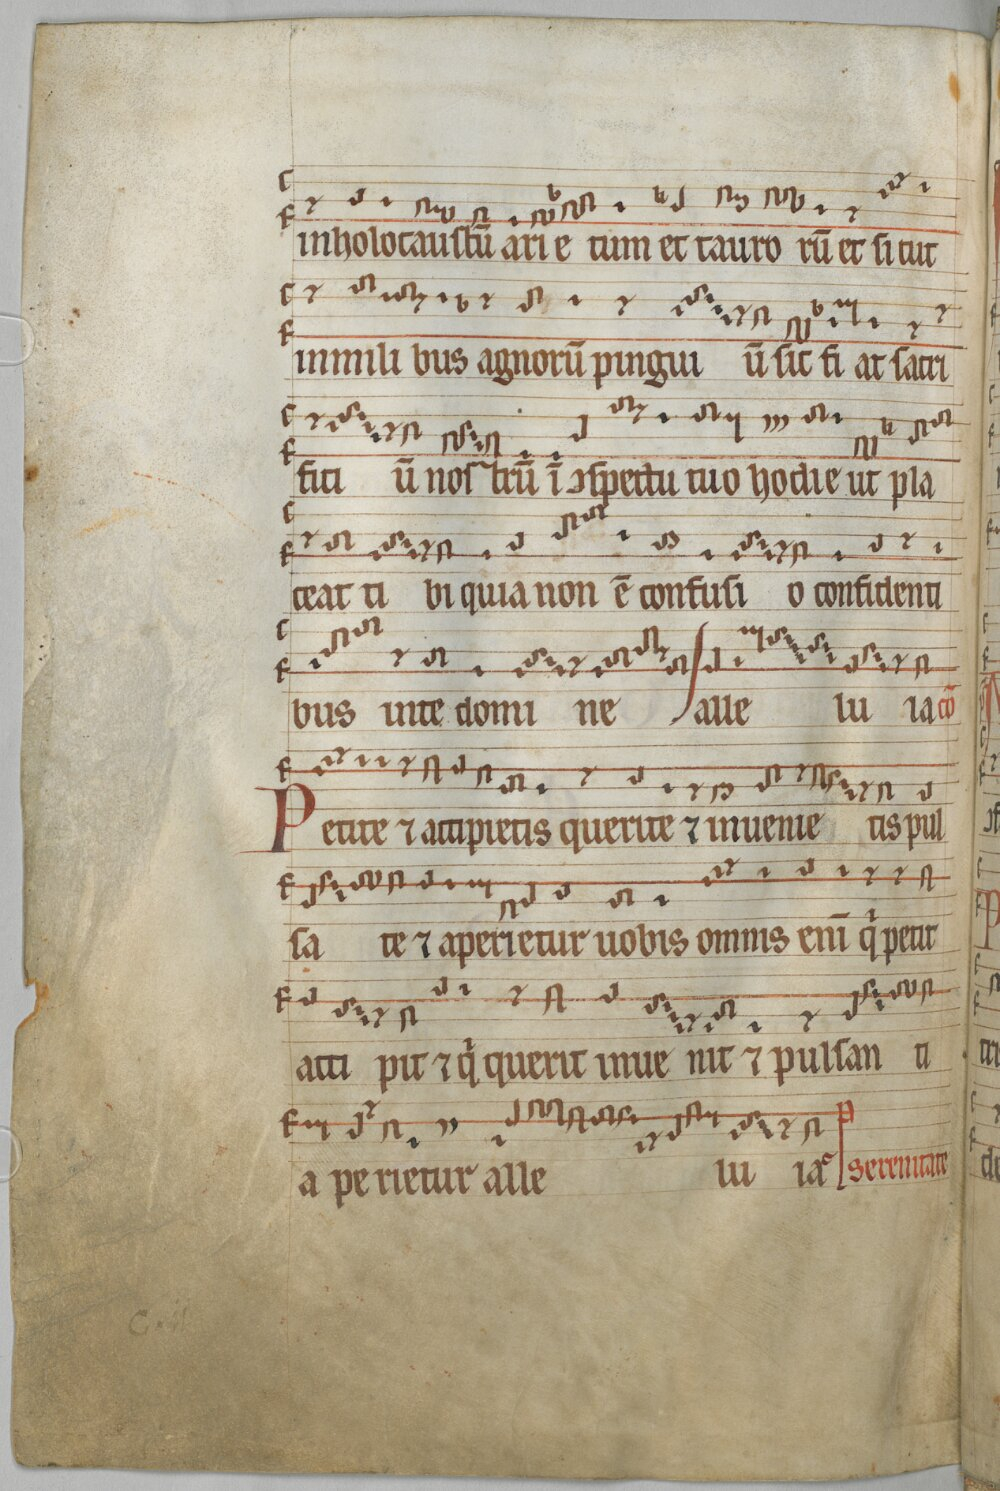 in holocaustū arie tum et tauro rū et si cut
inmili bus agnorū pingui ū sic fi at sacri
fici ū nos trū ī ↄspectu tuo hodie ut pla
ceat ti bi quia non ē confusi o confidenti
bus in te domi ne alle lu ia cō
Petite ⁊ accipietis querite ⁊ inuenie tis pul
sa te ⁊ aperietur uobis omnis enī q̇ petit
acci pit ⁊ q̇ querit inue nit ⁊ pulsan ti
a perietur alle lu ia serenitate